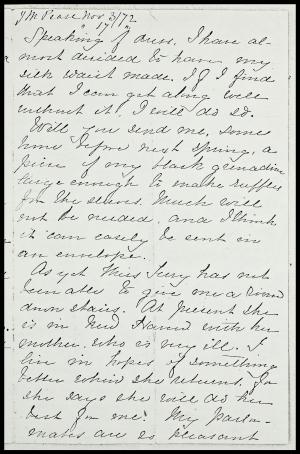 J M Pease Nov 3/72
" 17/ "
Speaking of dress. I have al-
most decided to have my
silk waist made. If I find
that I can get along well
without it, I will do so.
Will you send me, some
time before next spring, a
piece of my black grenadine
large enough to make ruffles
for the sleeves. Much will
not be needed, and I think
it can easily be sent in
an envelope.
As yet Miss Terry has not
been able to give me a room
down stairs. At present she
is in New Haven with her
mother, who is very ill. I
live in hopes of something
better when she returns. For
she says she will do her
best for me. My parlor
mates are so pleasant